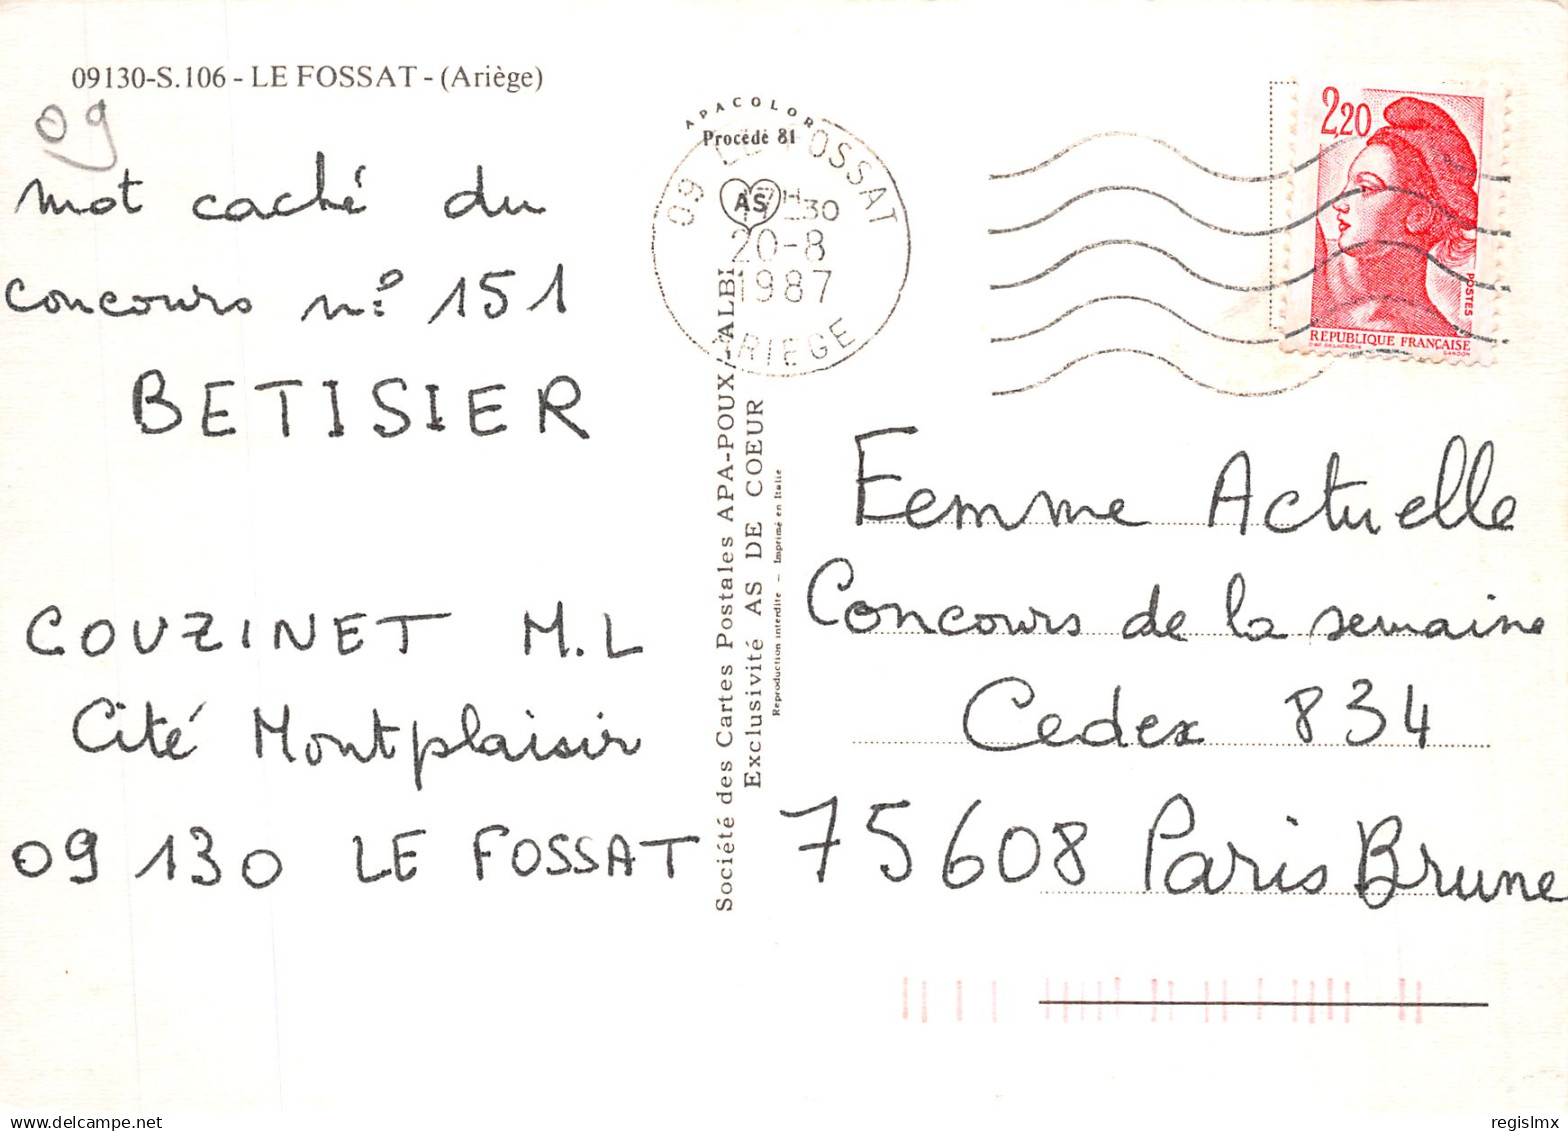 09130-S.106 - LE FOSSAT - (Ariège)
09
mot caché du
concours n° 151
BETISIER
COUZINET M.L
Cité Montplaisir
09 130 LE FOSSAT
APACOLOR
Procédé 81
AS
09 LE FOSSAT
17H30
20-8
1987
ARIEGE
Société des Cartes Postales APA-POUX - ALBI
Exclusivité AS DE COEUR
Reproduction interdite - Imprimé en Italie
2,20
POSTES
REPUBLIQUE FRANÇAISE
D'AP. DELACROIX GANDON
Femme Actuelle
Concours de la semaine
Cedex 834
75608 Paris Brune
regislmx